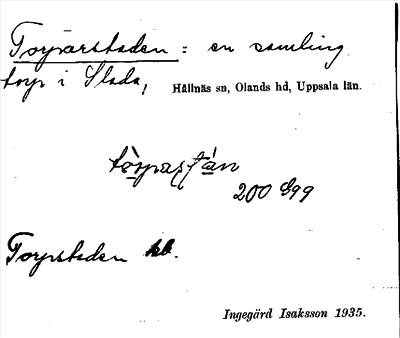 Torparstaden : en samling
torp i Slada, Hållnäs sn, Olands hd, Uppsala län.
200 499
Torpstaden kb.
Ingegärd Isaksson 1935.